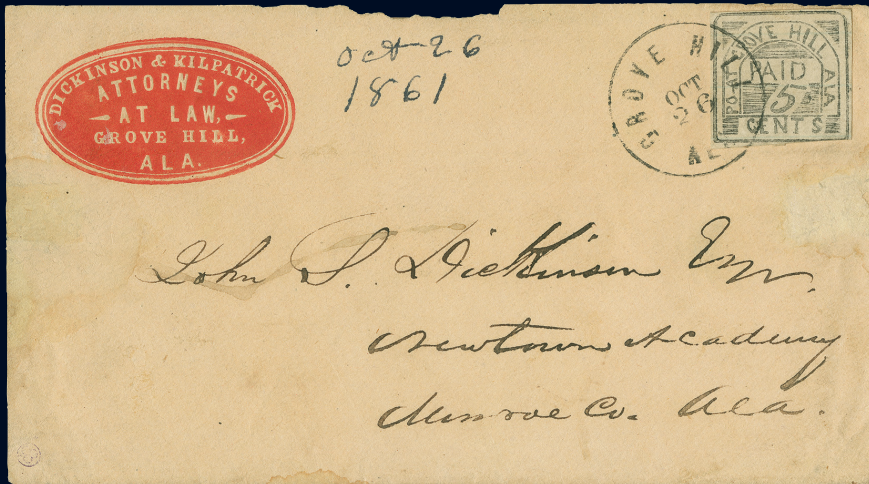 DICKINSON & KILPATRICK
ATTORNEYS
AT LAW,
GROVE HILL,
ALA.
Oct 26
1861
GROVE HILL
OCT
26
ALA
POST OFFICE GROVE HILL ALA
PAID
5
CENTS
John S. Dickinson Esqr.
Newtown Academy
Monroe Co. Ala.